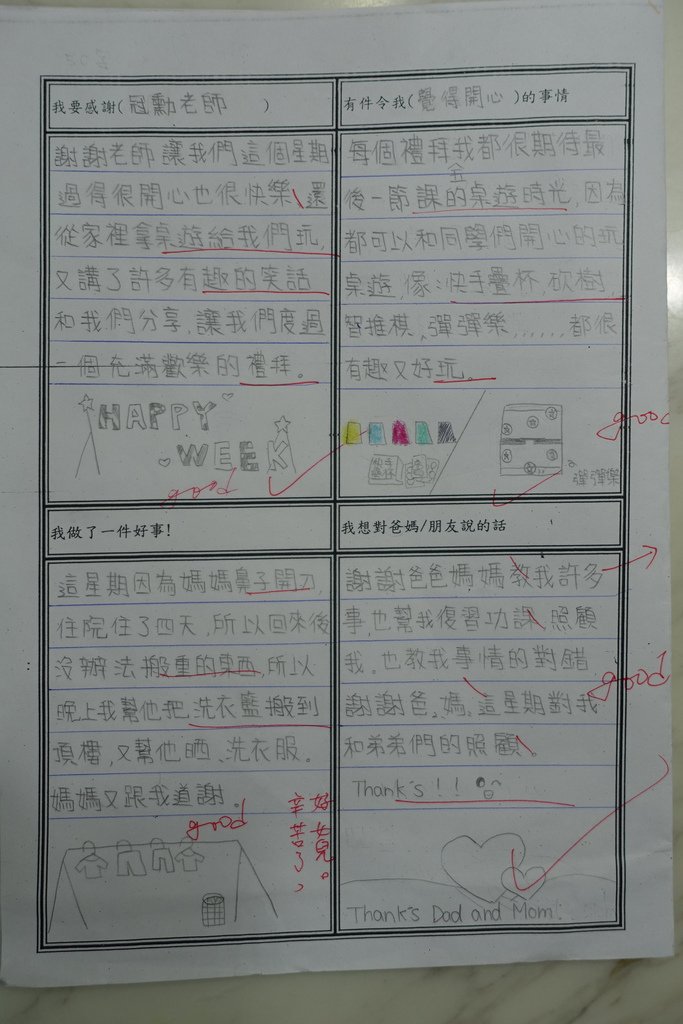 我要感謝(冠勳老師)
謝謝老師讓我們這個星期
過得很開心也很快樂、還
從家裡拿桌遊給我們玩,
又講了許多有趣的笑話
和我們分享,讓我們度過
一個充滿歡樂的禮拜。
HAPPY
WEEK
good
有件令我(覺得開心)的事情
每個禮拜我都很期待最
五
後一節課的桌遊時光,因為
都可以和同學們開心的玩
桌遊,像:快手疊杯,砍樹,
智推棋,彈彈樂......都很
有趣又好玩。
彈彈樂
good
我做了一件好事!
這星期因為媽媽鼻子開刀,
住院住了四天,所以回來後
沒辦法搬重的東西,所以
晚上我幫他把洗衣籃搬到
頂樓,又幫他晒、洗衣服。
媽媽又跟我道謝。
good
好女兒。
辛苦了,
我想對爸媽/朋友說的話
謝謝爸爸媽媽教我許多
事,也幫我復習功課,照顧
我,也教我事情的對錯
謝謝爸、媽、這星期對我
和弟弟們的照顧。
Thank's!!
good
Thank's Dad and Mom.